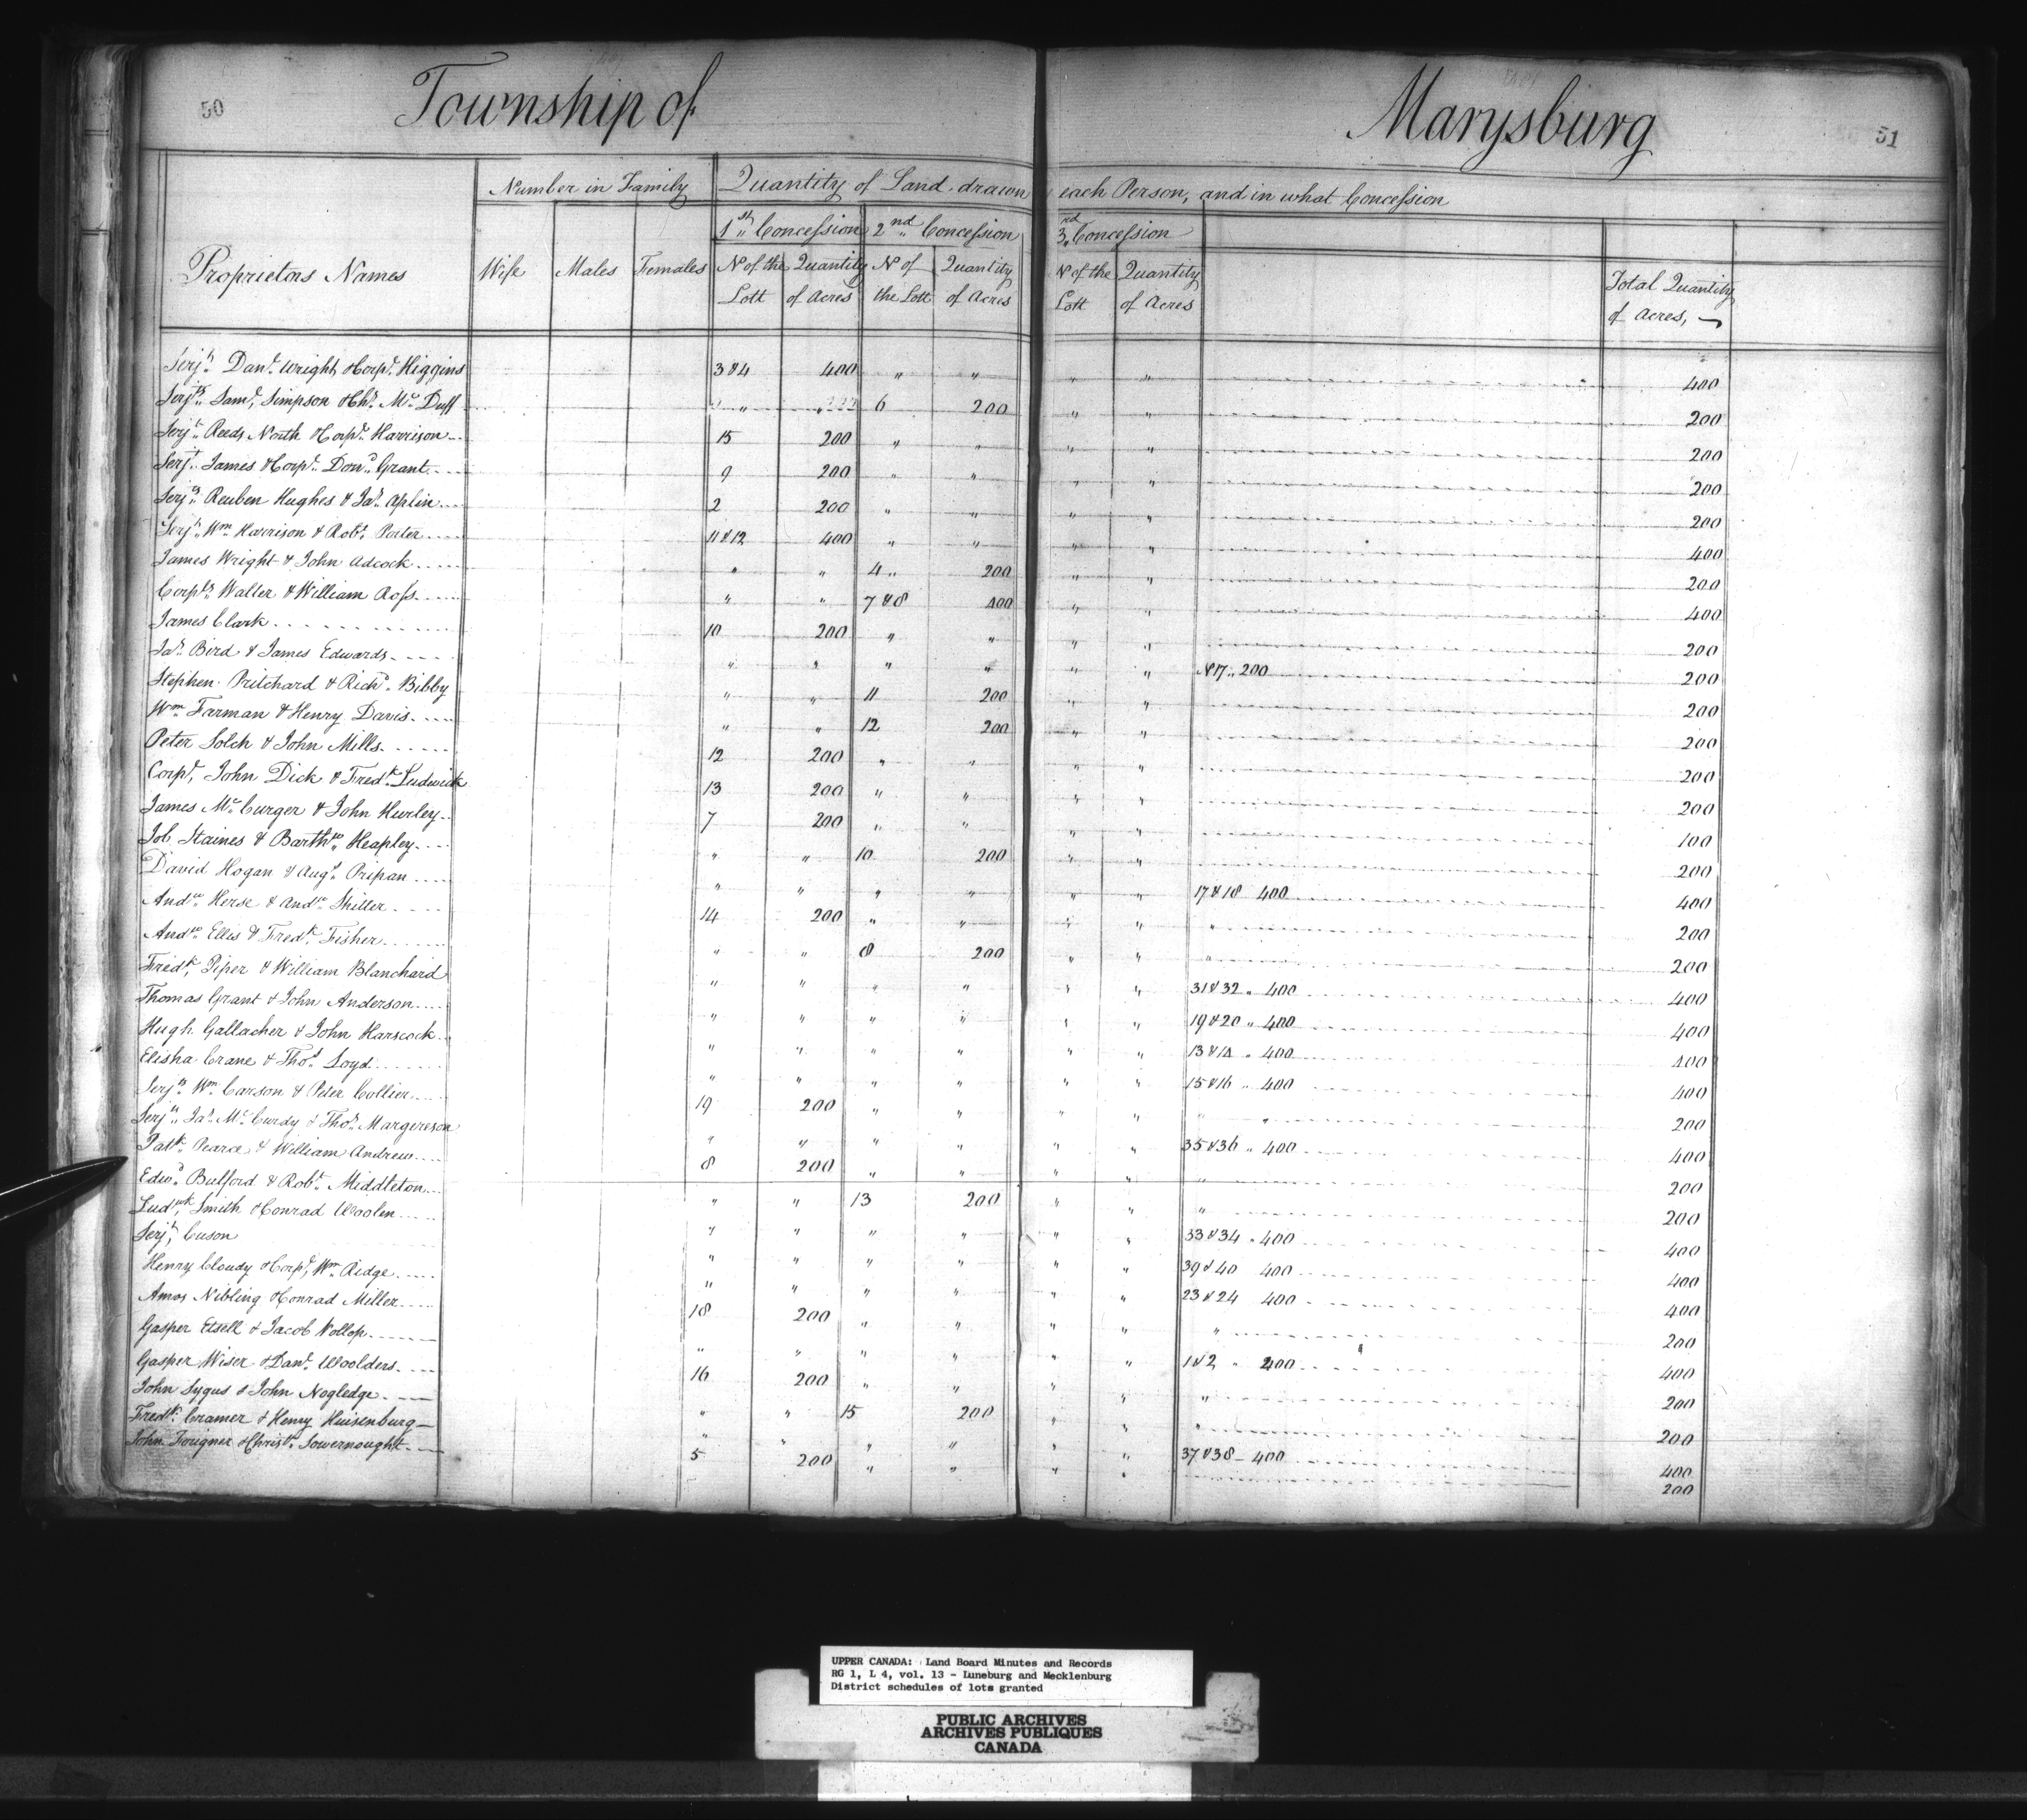 50 Township of Marysburg 51
Number in Family Quantity of Land drawn each Person, and in what Concession
1st Concession 2nd Concession 3rd Concession
Proprietors Names Wife Males Females N of the Lott Quantity of Acres N of the Lott Quantity of Acres N of the Lott Quantity of Acres Total Quantity of Acres,
Serjt. Danl. Wright & Corpl. Higgins 3 & 4 400 " " " " 400
Serjts. Saml. Simpson & Chs. Mc. Duff " 6 200 " " 200
Serjt. Reeds North & Corpl. Harrison 15 200 " " " " 200
Serjt. James & Corpl. Dond. Grant 9 200 " " " " 200
Serjts. Reuben Hughes & Jas. Aplin 2 200 " " " " 200
Serjt. Wm. Harrison & Robt. Porter 11 & 12 400 " " " " 400
James Wright & John Adcock " " 4 " 200 " " 200
Corpls. Walter & William Ross " " 7 & 8 400 " " 400
James Clark 10 200 " " " " 200
Jas. Bird & James Edwards " " " " " " N 17 " 200 200
Stephen Pritchard & Richd. Bibby " " 11 200 " " 200
Wm. Farman & Henry Davis " " 12 200 " " 200
Peter Solch & John Mills 12 200 " " " " 200
Corpl. John Dick & Fredk. Ludwick 13 200 " " " " 200
James Mc. Curger & John Hurley 7 200 " " " " 100
Job Staines & Barthw. Heapley " " 10 200 " " 200
David Hogan & Augt. Pripan " " " " " " 17 & 18 400 400
Andw. Herse & Andw. Shiller 14 200 " " " " " 200
Andw. Ellis & Fredk. Fisher " " 8 200 " " " 200
Fredk. Piper & William Blanchard " " " " " " 31 & 32 " 400 400
Thomas Grant & John Anderson " " " " " " 19 & 20 " 400 400
Hugh Gallacher & John Harscock " " " " " " 13 & 14 " 400 400
Elisha Crane & Thos. Loyd " " " " " " 15 & 16 " 400 400
Serjts. Wm. Carson & Peter Collier 19 200 " " " " " " 200
Serjts. Jas. Mc. Curdy & Thos. Margereson " " " " " " 35 & 36 " 400 400
Patk. Pearce & William Andrew 8 200 " " " " " 200
Edwd. Bulford & Robt. Middleton " " 13 200 " " " 200
Ludwk. Smith & Conrad Woolen " " " " " " 33 & 34 " 400 400
Serjt. Cuson " " " " " " 39 & 40 400 400
Henry Cloudy & Corpl. Wm. Ridge " " " " " " 23 & 24 400 400
Amos Nibling & Conrad Miller 18 200 " " " " " 200
Gasper Etsell & Jacob Vollop " " " " " " 1 & 2 " 400 400
Gasper Wiser & Danl. Woolders 16 200 " " " " " 200
John Sygus & John Nogledge " " 15 200 " " " 200
Fredk. Cramer & Henry Huisenburg " " " " " " 37 & 38 400 400
John Frigner & Christr. Sowernought 5 200 " " " " 200
UPPER CANADA: Land Board Minutes and Records
RG 1, L 4, vol. 13 - Luneburg and Mecklenburg
District schedules of lots granted
PUBLIC ARCHIVES
ARCHIVES PUBLIQUES
CANADA